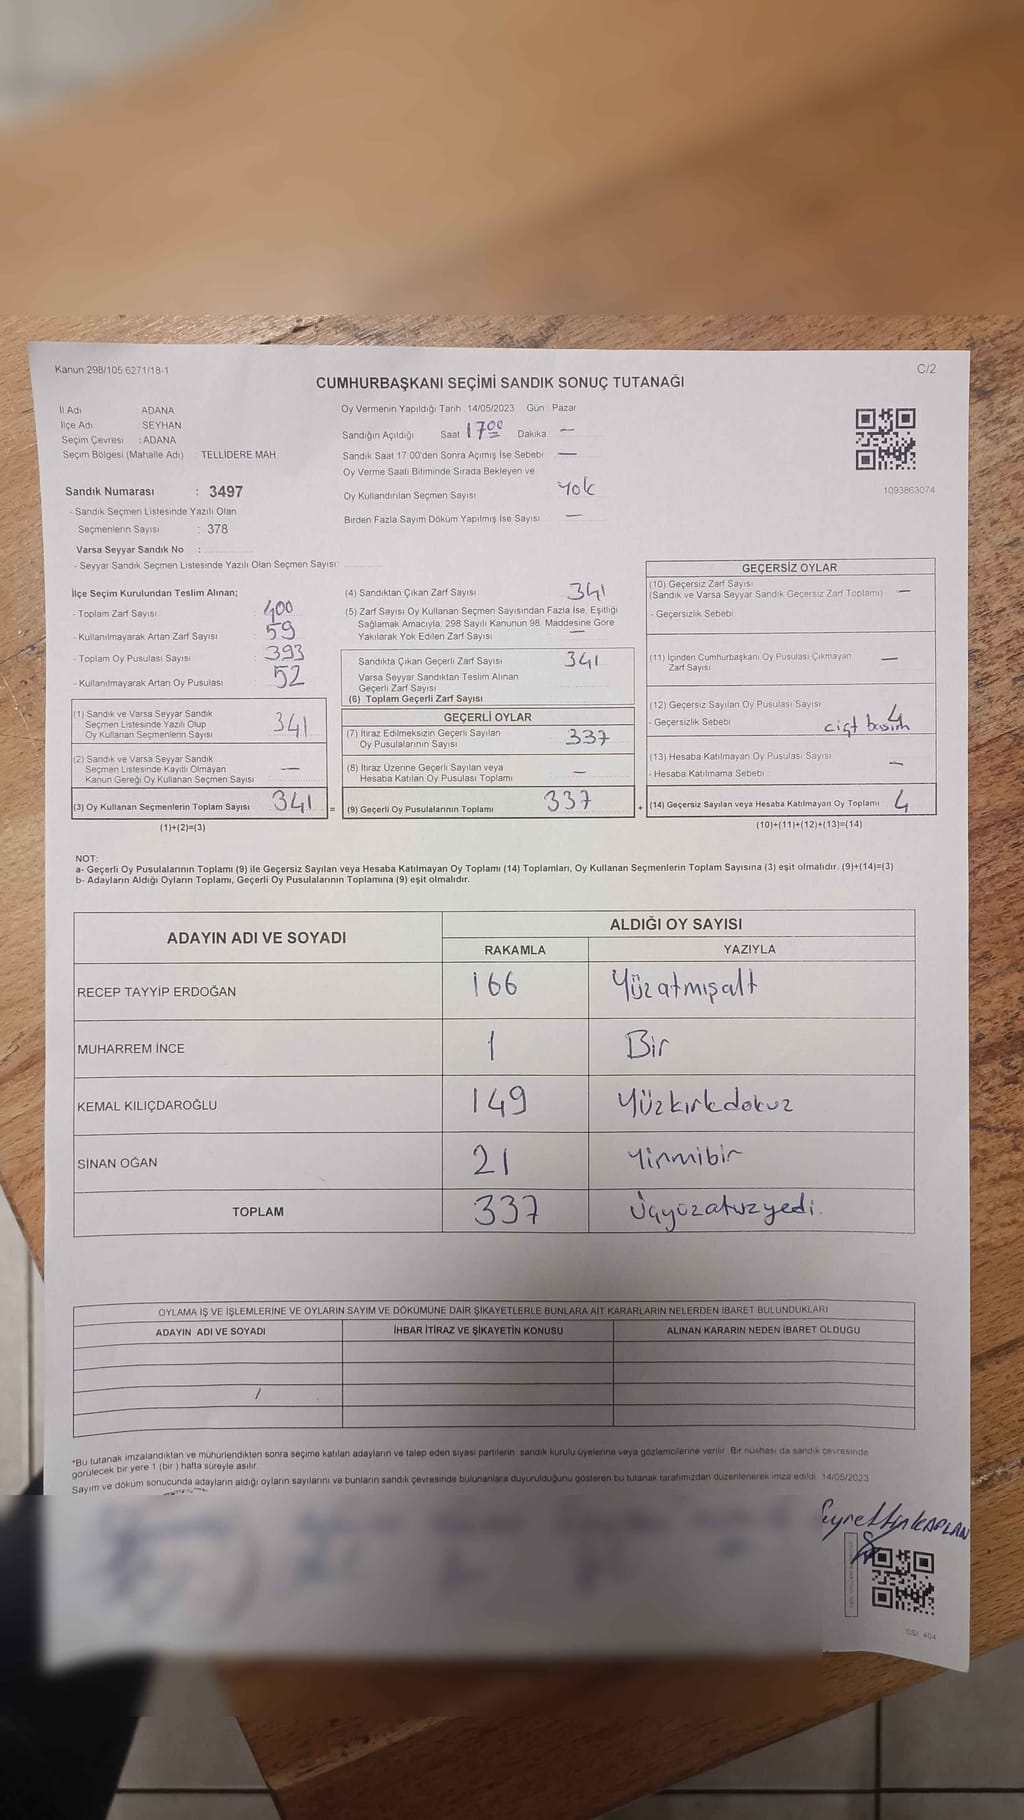 Kanun 298/105 6271/18-1
C/2
CUMHURBAŞKANI SEÇİMİ SANDIK SONUÇ TUTANAĞI
İl Adı : ADANA
İlçe Adı : SEYHAN
Seçim Çevresi : ADANA
Seçim Bölgesi (Mahalle Adı) TELLİDERE MAH
Sandık Numarası : 3497
- Sandık Seçmen Listesinde Yazılı Olan
Seçmenlerin Sayısı : 378
Varsa Seyyar Sandık No :
- Seyyar Sandık Seçmen Listesinde Yazılı Olan Seçmen Sayısı:
Oy Vermenin Yapıldığı Tarih :14/05/2023 Gün : Pazar
Sandığın Açıldığı Saat 1700 Dakika —
Sandık Saat 17:00'den Sonra Açımış İse Sebebi —
Oy Verme Saati Bitiminde Sırada Bekleyen ve
Oy Kullandırılan Seçmen Sayısı Yok
Birden Fazla Sayım Döküm Yapılmış İse Sayısı —
1093863074
İlçe Seçim Kurulundan Teslim Alınan;
- Toplam Zarf Sayısı 400
- Kullanılmayarak Artan Zarf Sayısı 59
- Toplam Oy Pusulası Sayısı 393
- Kullanılmayarak Artan Oy Pusulası 52
(1) Sandık ve Varsa Seyyar Sandık
Seçmen Listesinde Yazılı Olup
Oy Kullanan Seçmenlerin Sayısı 341
(2) Sandık ve Varsa Seyyar Sandık
Seçmen Listesinde Kayıtlı Olmayan
Kanun Gereği Oy Kullanan Seçmen Sayısı —
(3) Oy Kullanan Seçmenlerin Toplam Sayısı 341 =
(1)+(2)=(3)
(4) Sandıktan Çıkan Zarf Sayısı 341
(5) Zarf Sayısı Oy Kullanan Seçmen Sayısından Fazla İse, Eşitliği
Sağlamak Amacıyla, 298 Sayılı Kanunun 98. Maddesine Göre
Yakılarak Yok Edilen Zarf Sayısı —
Sandıkta Çıkan Geçerli Zarf Sayısı 341
Varsa Seyyar Sandıktan Teslim Alınan
Geçerli Zarf Sayısı
(6) Toplam Geçerli Zarf Sayısı
GEÇERLİ OYLAR
(7) İtiraz Edilmeksizin Geçerli Sayılan
Oy Pusulalarının Sayısı 337
(8) İtiraz Üzerine Geçerli Sayılan veya
Hesaba Katılan Oy Pusulası Toplamı —
(9) Geçerli Oy Pusulalarının Toplamı 337 +
GEÇERSİZ OYLAR
(10) Geçersiz Zarf Sayısı
(Sandık ve Varsa Seyyar Sandık Geçersiz Zarf Toplamı) —
- Geçersizlik Sebebi
(11) İçinden Cumhurbaşkanı Oy Pusulası Çıkmayan
Zarf Sayısı —
(12) Geçersiz Sayılan Oy Pusulası Sayısı 4
- Geçersizlik Sebebi çift basım
(13) Hesaba Katılmayan Oy Pusulası Sayısı —
- Hesaba Katılmama Sebebi
(14) Geçersiz Sayılan veya Hesaba Katılmayan Oy Toplamı 4
(10)+(11)+(12)+(13)=(14)
NOT:
a- Geçerli Oy Pusulalarının Toplamı (9) ile Geçersiz Sayılan veya Hesaba Katılmayan Oy Toplamı (14) Toplamları, Oy Kullanan Seçmenlerin Toplam Sayısına (3) eşit olmalıdır. (9)+(14)=(3)
b- Adayların Aldığı Oyların Toplamı, Geçerli Oy Pusulalarının Toplamına (9) eşit olmalıdır.
ADAYIN ADI VE SOYADI ALDIĞI OY SAYISI
RAKAMLA YAZIYLA
RECEP TAYYİP ERDOĞAN 166 Yüzatmışaltı
MUHARREM İNCE 1 Bir
KEMAL KILIÇDAROĞLU 149 Yüzkırkdokuz
SİNAN OĞAN 21 Yirmibir
TOPLAM 337 Üçyüzotuzyedi.
OYLAMA İŞ VE İŞLEMLERİNE VE OYLARIN SAYIM VE DÖKÜMÜNE DAİR ŞİKAYETLERLE BUNLARA AİT KARARLARIN NELERDEN İBARET BULUNDUKLARI
ADAYIN ADI VE SOYADI İHBAR İTİRAZ VE ŞİKAYETİN KONUSU ALINAN KARARIN NEDEN İBARET OLDUĞU
*Bu tutanak imzalandıktan ve mühürlendikten sonra seçime katılan adayların ve talep eden siyasi partilerin sandık kurulu üyelerine veya gözlemcilerine verilir. Bir nüshası da sandık çevresinde
görülecek bir yere 1 (bir ) hafta süreyle asılır.
Sayım ve döküm sonucunda adayların aldığı oyların sayılarını ve bunların sandık çevresinde bulunanlara duyurulduğunu gösteren bu tutanak tarafımızdan düzenlenerek imza edildi. 14/05/2023
KAPLAN